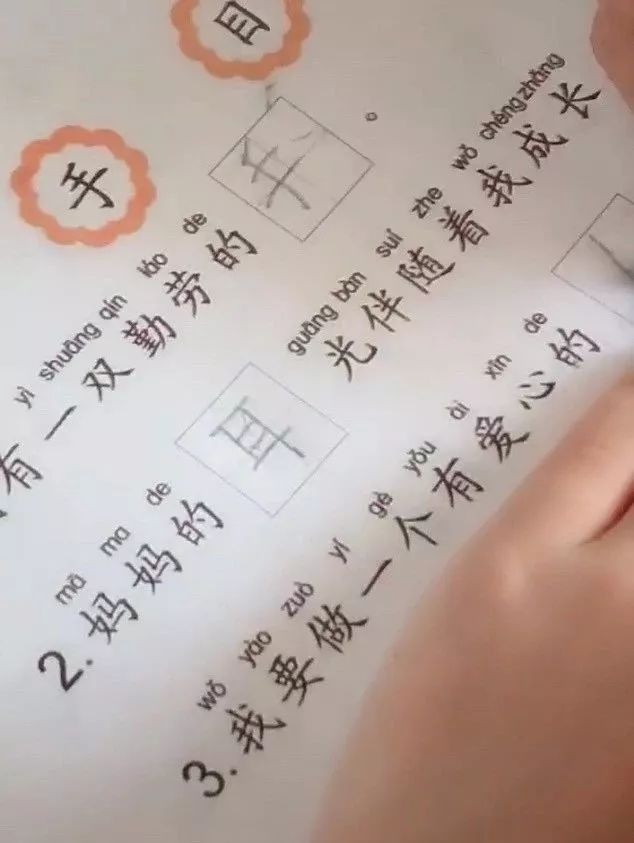 手 目
yì shuāng qín láo de
有一双勤劳的手。
mā ma de guāng bàn suí zhe wǒ chéng zhǎng
2. 妈妈的耳光伴随着我成长
wǒ yào zuò yí gè yǒu ài xīn de
3. 我要做一个有爱心的